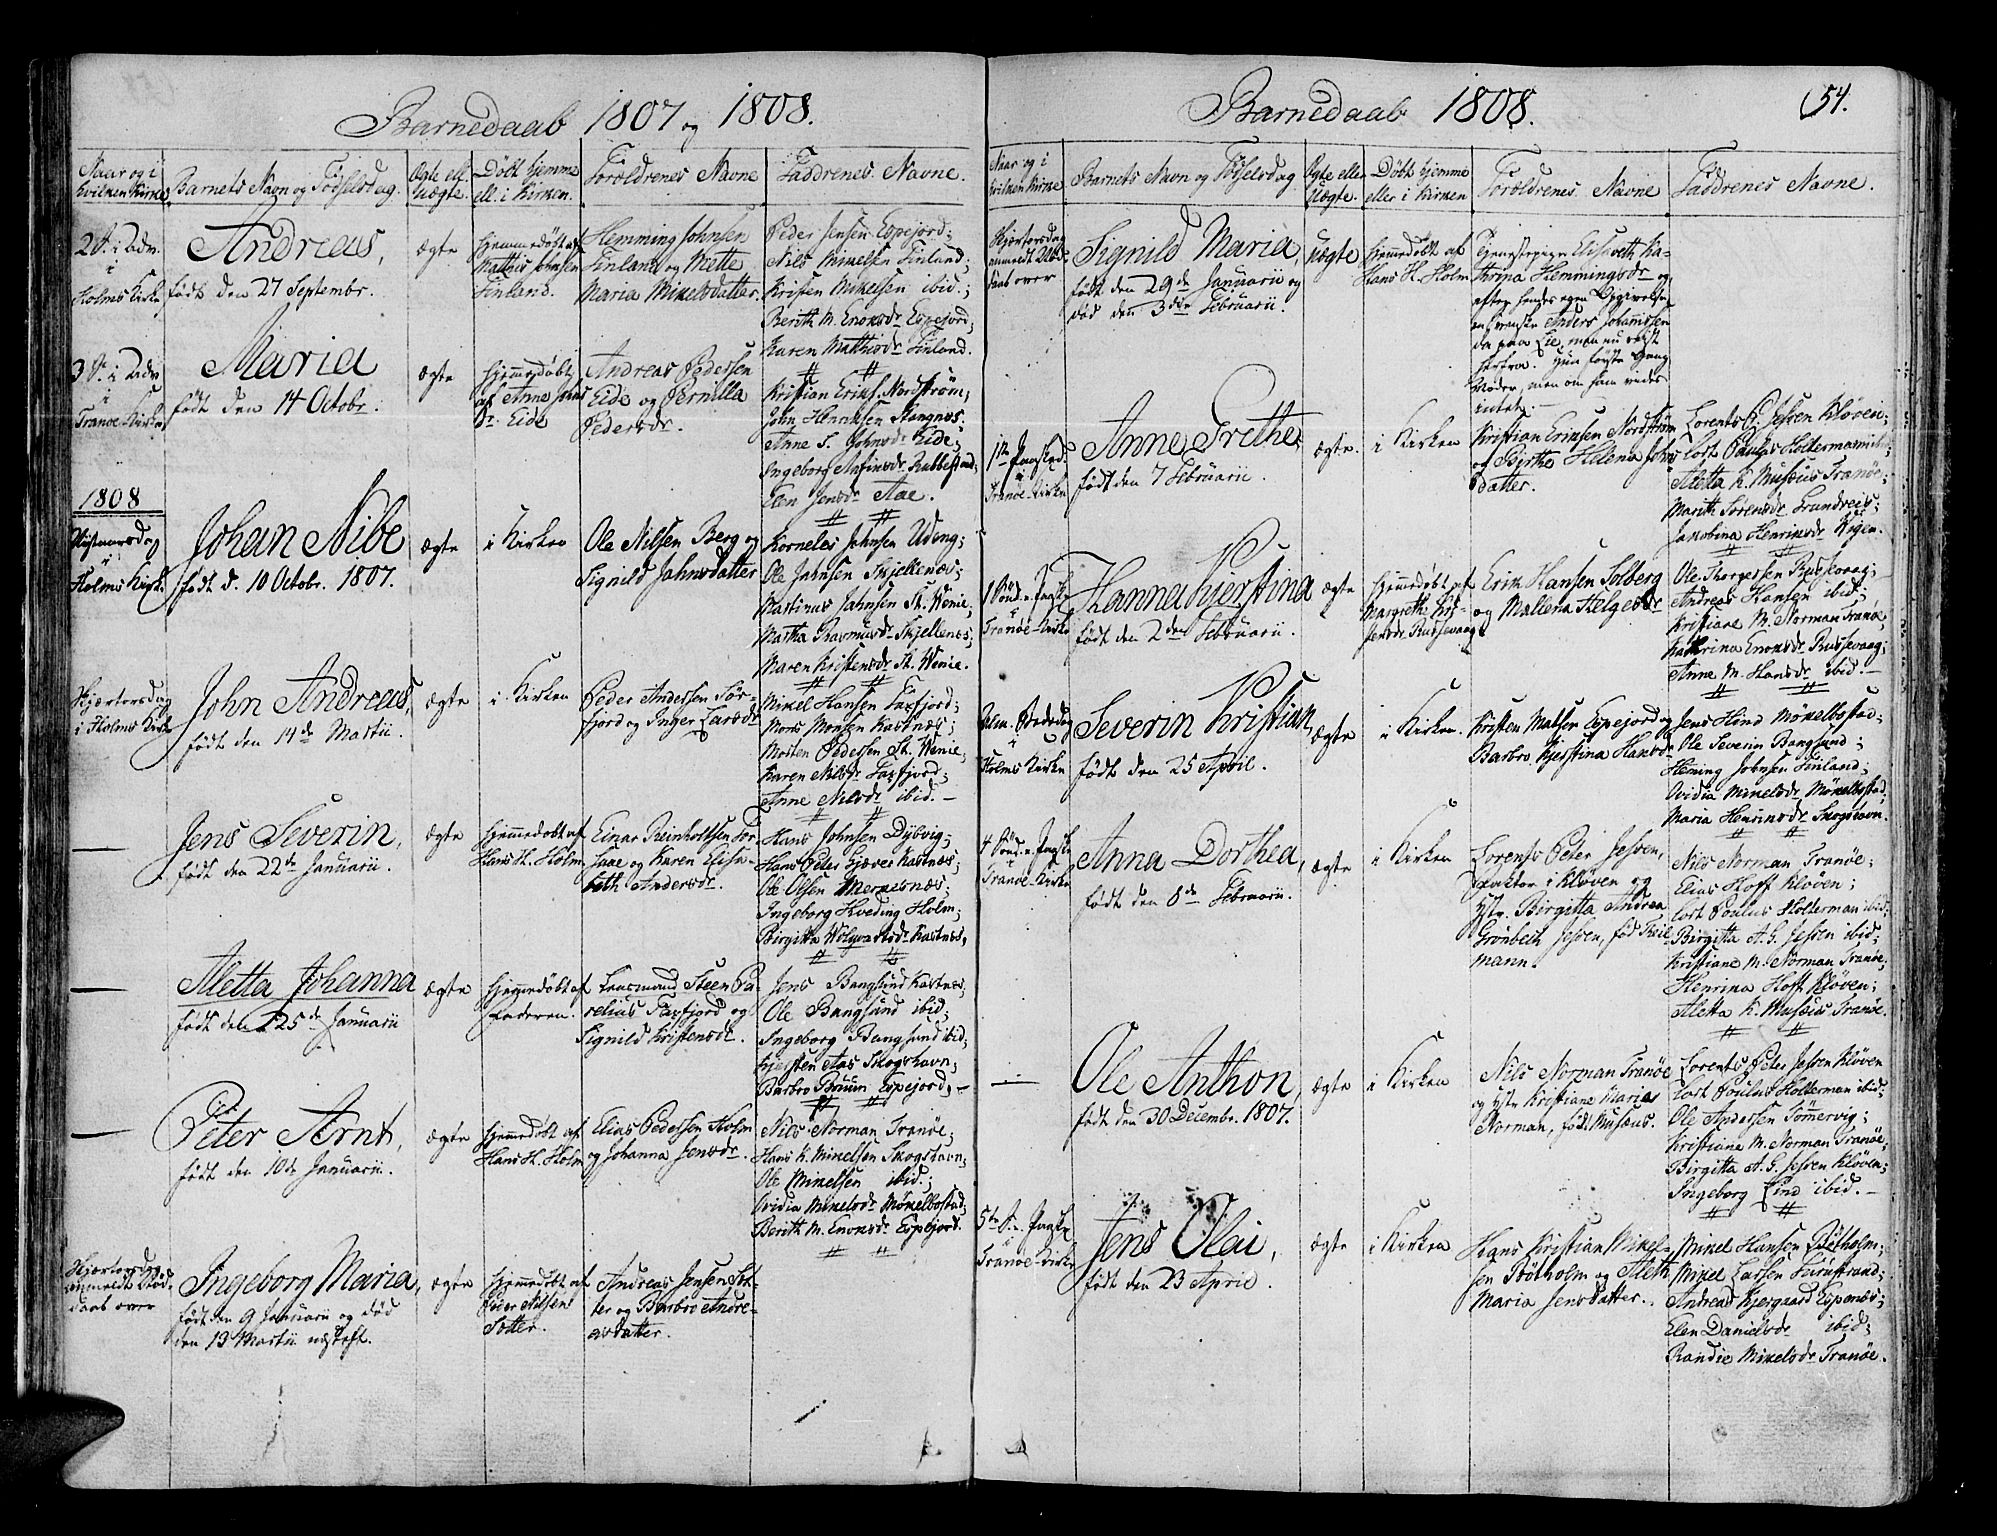 Barnedaab 1807 og 1808.
Naar og i
hvilken Kirke
Barnets Navn og Fødselsdag.
Ægte ell.
Uægte.
Døbt hjemme
ell. i Kirken.
Forældrenes Navne
Faddrenes Navne.
2 S. i Adv.
i
Holms Kirke
Andreas,
født den 27 Septembr.
ægte
hjemmedøbt af
Mathis Johnsen
Finland.
Hemming Johnsen
Finland og Mette
Maria Mikelsdatter.
Peder Jensen Espejord;
Nils Mikelsen Finland;
Kristen Mikelsen ibid.;
Berith M. Enoksdr. Espejord;
Karen Mathisdr. Finland.
3 S. i Adv.
i
Tranøe Kirke
Maria
født den 14 Octobr.
ægte
hjemmedøbt
af Anne Johns
dr. Eide
Andreas Pedersen
Eide og Pernilla
Pedersdr.
Kristian Eriks. Nordstrøm;
John Henriksen Stangnæs;
Anne S. Johnsdr. Eide;
Ingeborg Anfinsdr. Rubbestad;
Elen Jensdr. Aae.
1808
Nytaarsdag
i
Holms Kirke
Johan Nibe
født d. 10 Octobr. 1807.
ægte
i Kirken
Ole Nilsen Berg og
Signild Jahnsdatter
Korneles Johnsen Udeng;
Ole Jahnsen Skjellenæs;
Martinus Jahnsen St. Wenie;
Martha Rasmusdr. Skjellenæs;
Maren Kristensdr. St. Wenie.
Skjærtorsdag
i Holms Kirke
John Andreas,
født den 14de Martii.
ægte
i Kirken
Peder Andersen Sør-
fjord og Inger Larsdr.
Mikel Hansen Laxfjord;
Mons Monsen Kastnæs;
Morten Pedersen St. Wenie;
Karen Nilsdr. Laxfjord;
Anne Nilsdr. ibid.
Jens Severin,
født den 22de Januarii.
ægte
hjemmedøbt af
Hans H. Holm
Einar Reinholtsen For
faae og Karen Elisa-
beth Andersdr.
Hans Johnsen Dybvig;
Hans Peter Gjæver Kastnæs;
Ole Olsen Merkesnæs;
Ingeborg Hveding Holm;
Birgitta Wolqvartsdr. Kastnæs.
Aletta Johanna
født den 25de Januarii
ægte
hjemmedøbt af
Faderen.
Lensmand Steen Pa-
relius Laxfjord og
Signild Kristensdr.
Jens Bangsund Kastnæs;
Ole Bangsund ibid;
Ingeborg Bangsund ibid;
Kjersten Aas Skogshavn;
Barbro Bruun Espejord.
Peter Arnt,
født den 10de Januarii.
ægte
hjemmedøbt af
Hans H. Holm
Elias Pedersen Holm
og Johanna Jensdr.
Nils Norman Tranøe;
Hans K. Mikelsen Skogshavn;
Ole Mikelsen ibid.;
Ovidia Mikelsdr. Møkelbostad;
Berith M. Enoksdr. Espejord.
Skjærtorsdag
anmeldt Død-
daab over
Ingeborg Maria,
født den 9 Januarii og død
den 13 Martii næsteft.
ægte
hjemmedøbt af
Peder Nilsen
Sotter.
Andreas Jensen Sot-
ter og Barbro Andre-
asdatter.
Barnedaab 1808.
54.
Naar og i
hvilken Kirke
Barnets Navn og Fødselsdag
Ægte eller
Uægte.
Døbt hjemme
eller i Kirken
Forældrenes Navne
Faddrenes Navne.
Skjærtorsdag
anmeldt Død-
daab over
Signild Maria,
født den 29de Januarii og
død den 3die Februarii.
Uægte
hjemmedøbt af
Hans H. Holm
Tjenestepige Elisabeth Ka-
thrina Hemmingsdr. og
efter hendes egen Opgivelse
en svenske Anders Johanssen
da paa Lie, men nu rejst
herfra. Hun første Gang
Moder, men om ham vides
intet.
1ste Paasked.
i
Tranøe Kirke
Anne Grethe,
født den 7 Februarii.
ægte.
i Kirken
Kristian Eriksen Nordstrøm
og Birthe Helena Johns
datter.
Lorents P. Jessen Kløven;
Cort Paulus Holterman ibid;
Aletta K. Musæus Tranøe;
Marith Sørensdr. Trandreis;
Jakobina Henriksdr. Vogen.
1 Sønd. e. Paaske
i
Tranøe Kirke
Hanna Kjerstina
født den 2den Februarii.
ægte
hjemmedøbt af
Margreth Kri-
stensdr. Russevaag
Erik Hansen Solberg
og Mallena Helgesdr.
Ole Thorgersen Russevaag;
Andreas Hansen ibid;
Kristiane M. Norman Tranøe
Kathrina Enoksdr. Russevaag;
Anne M. Hansdr. ibid.
Alm. Bededag
i
Holms Kirke
Severin Kristian,
født den 25 April.
ægte
i Kirken.
Kristen Matsen Espejord og
Barbro Kjerstina Hansdr.
Jens Hind Møkelbostad;
Ole Severin Bangsund;
Heming Johnsen Finland;
Ovidia Mikelsdr. Møkelbostad;
Maria Henriksdr. Skogshavn.
4 Sønd. e. Paaske
i
Tranøe Kirke
Anna Dorthea,
født den 8de Februarii.
ægte
i Kirken
Lorents Peter Jessen,
Faktor i Kløven og
Hstr. Birgitta Andrea
Grønbech Jessen, fød Heil-
mann.
Nils Norman Tranøe;
Elias Hoff Kløven;
Cort Poulus Holterman ibid;
Birgitta A. G. Jessen ibid;
Kristiane M. Norman Tranøe;
Henrika Hoff Kløven;
Aletta K. Musæus Tranøe.
Ole Anthon,
født den 30 Decembr. 1807.
ægte
i Kirken
Nils Norman Tranøe
og Hstr. Kristiane Maria
Norman, fød Musæus.
Lorents Peter Jessen Kløven
Cort Poulus Holterman ibid;
Ole Andersen Tømmervig;
Kristiane M. Norman Tranøe;
Birgitta A. G. Jessen Kløven;
Ingeborg Lind ibid.
5te S. e. Paaske
i
Tranøe Kirke
Jens Olai,
født den 23 April.
ægte
i Kirken
Hans Kristian Mikel-
sen Bøtholm og Aleth
Maria Jensdatter.
Mikel Hansen Bøtholm;
Mikel Larsen Furustrand;
Andreas Kjergaard Espenæs;
Elen Danielsdr. ibid;
Randie Mikelsdr. Tranøe.